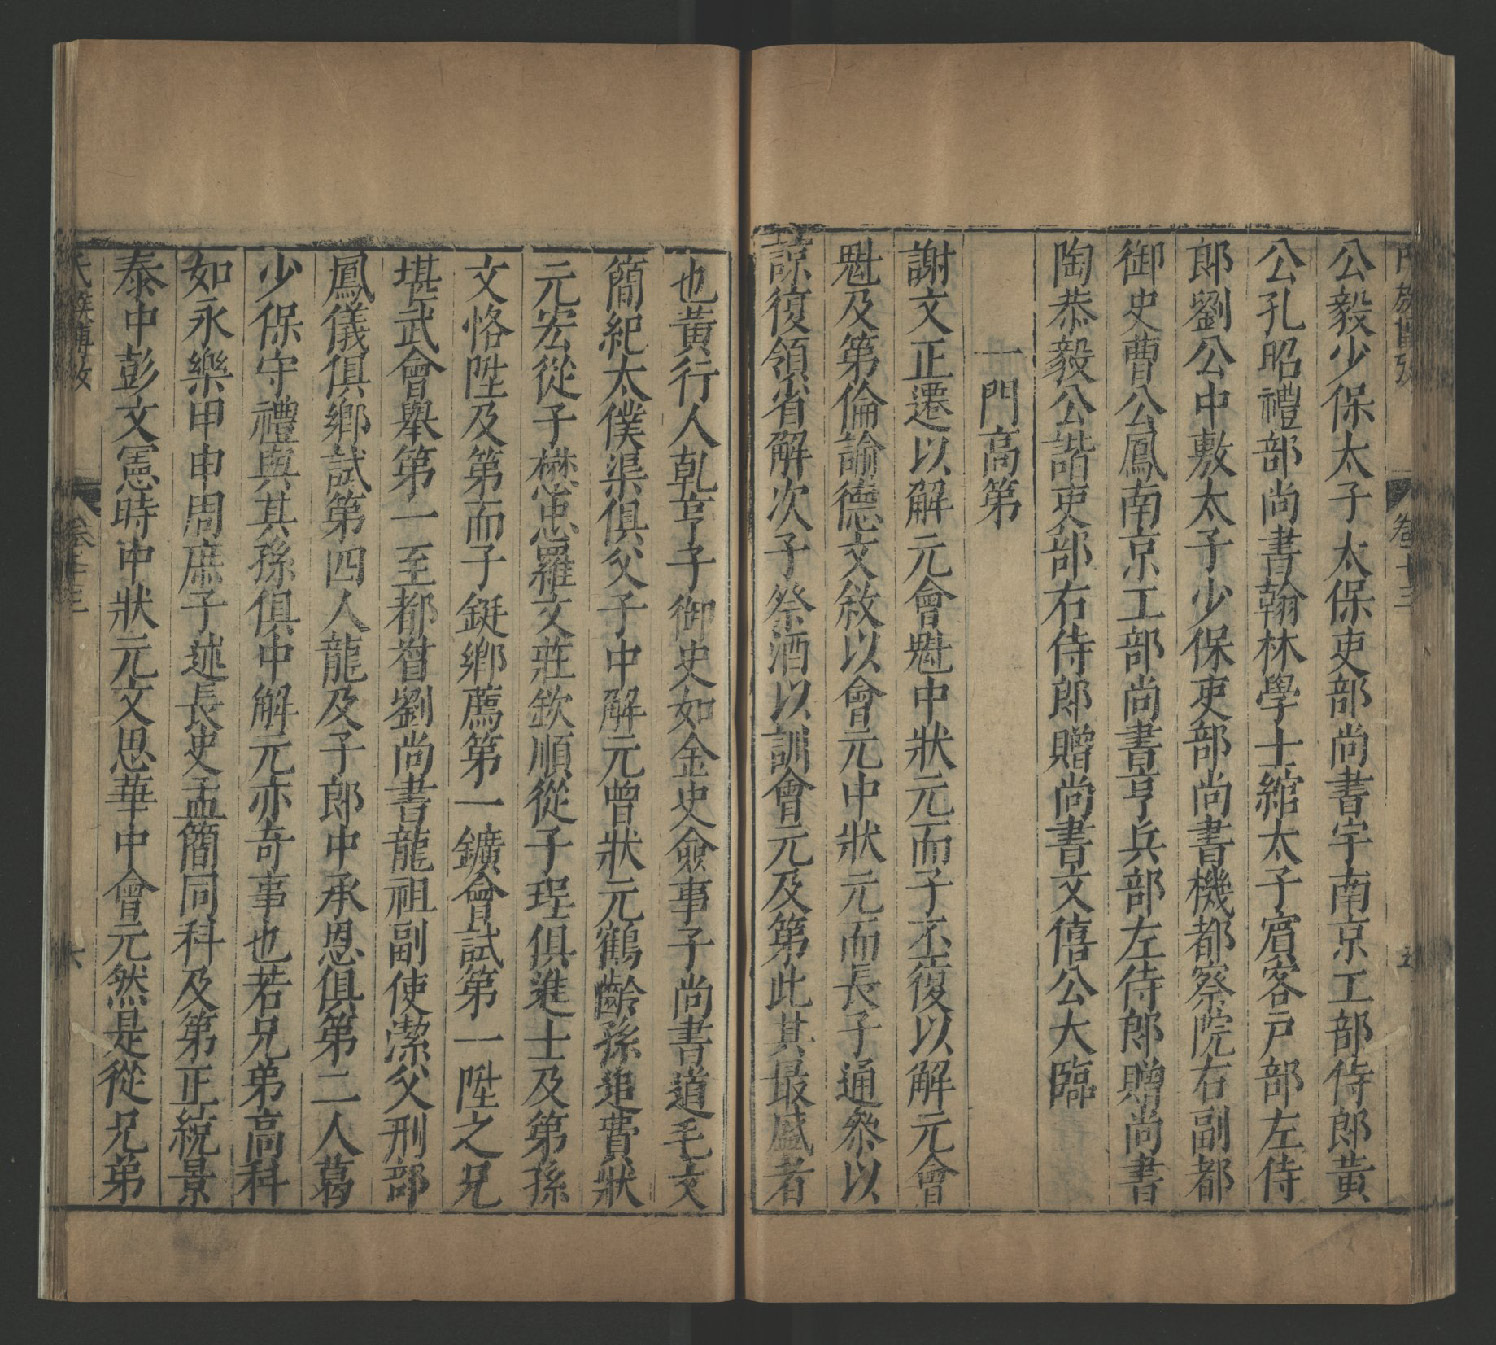 公毅少保太子太保吏部尚書宇南京工部侍郎黄
公孔昭禮部尚書翰林學士綰太子賓客戸部左侍
郎劉公中敷太子少保吏部尚書機都察院右副都
御史曹公鳳南京工部尚書亨兵部左侍郎贈尚書
陶恭毅公諧吏部右侍郎贈尚書文僖公大臨
一門高第
謝文正遷以解元會魁中狀元而子丕復以解元會
魁及第倫諭德文敘以會元中狀元而長子通參以
諒復領省解次子祭酒以訓會元及第此其最盛者
也黃行人乹亨子御史如金史僉事子尚書道毛文
簡紀太僕渠俱父子中解元曾狀元鶴齡孫追費狀
元宏從子懋忠羅文莊欽順從子珵俱進士及第孫
文恪陞及第而子鋌鄉薦第一鑛會試第一陞之兄
堪武會舉第一至都督劉尚書龍祖副使潔父刑部
鳳儀俱鄉試第四人龍及子郎中承恩俱第二人葛
少保守禮與其孫俱中解元亦奇事也若兄弟高科
如永樂甲申周庶子述長史孟簡同科及第正統景
泰中彭文憲時中狀元文思華中會元然是從兄弟
卷十三
六